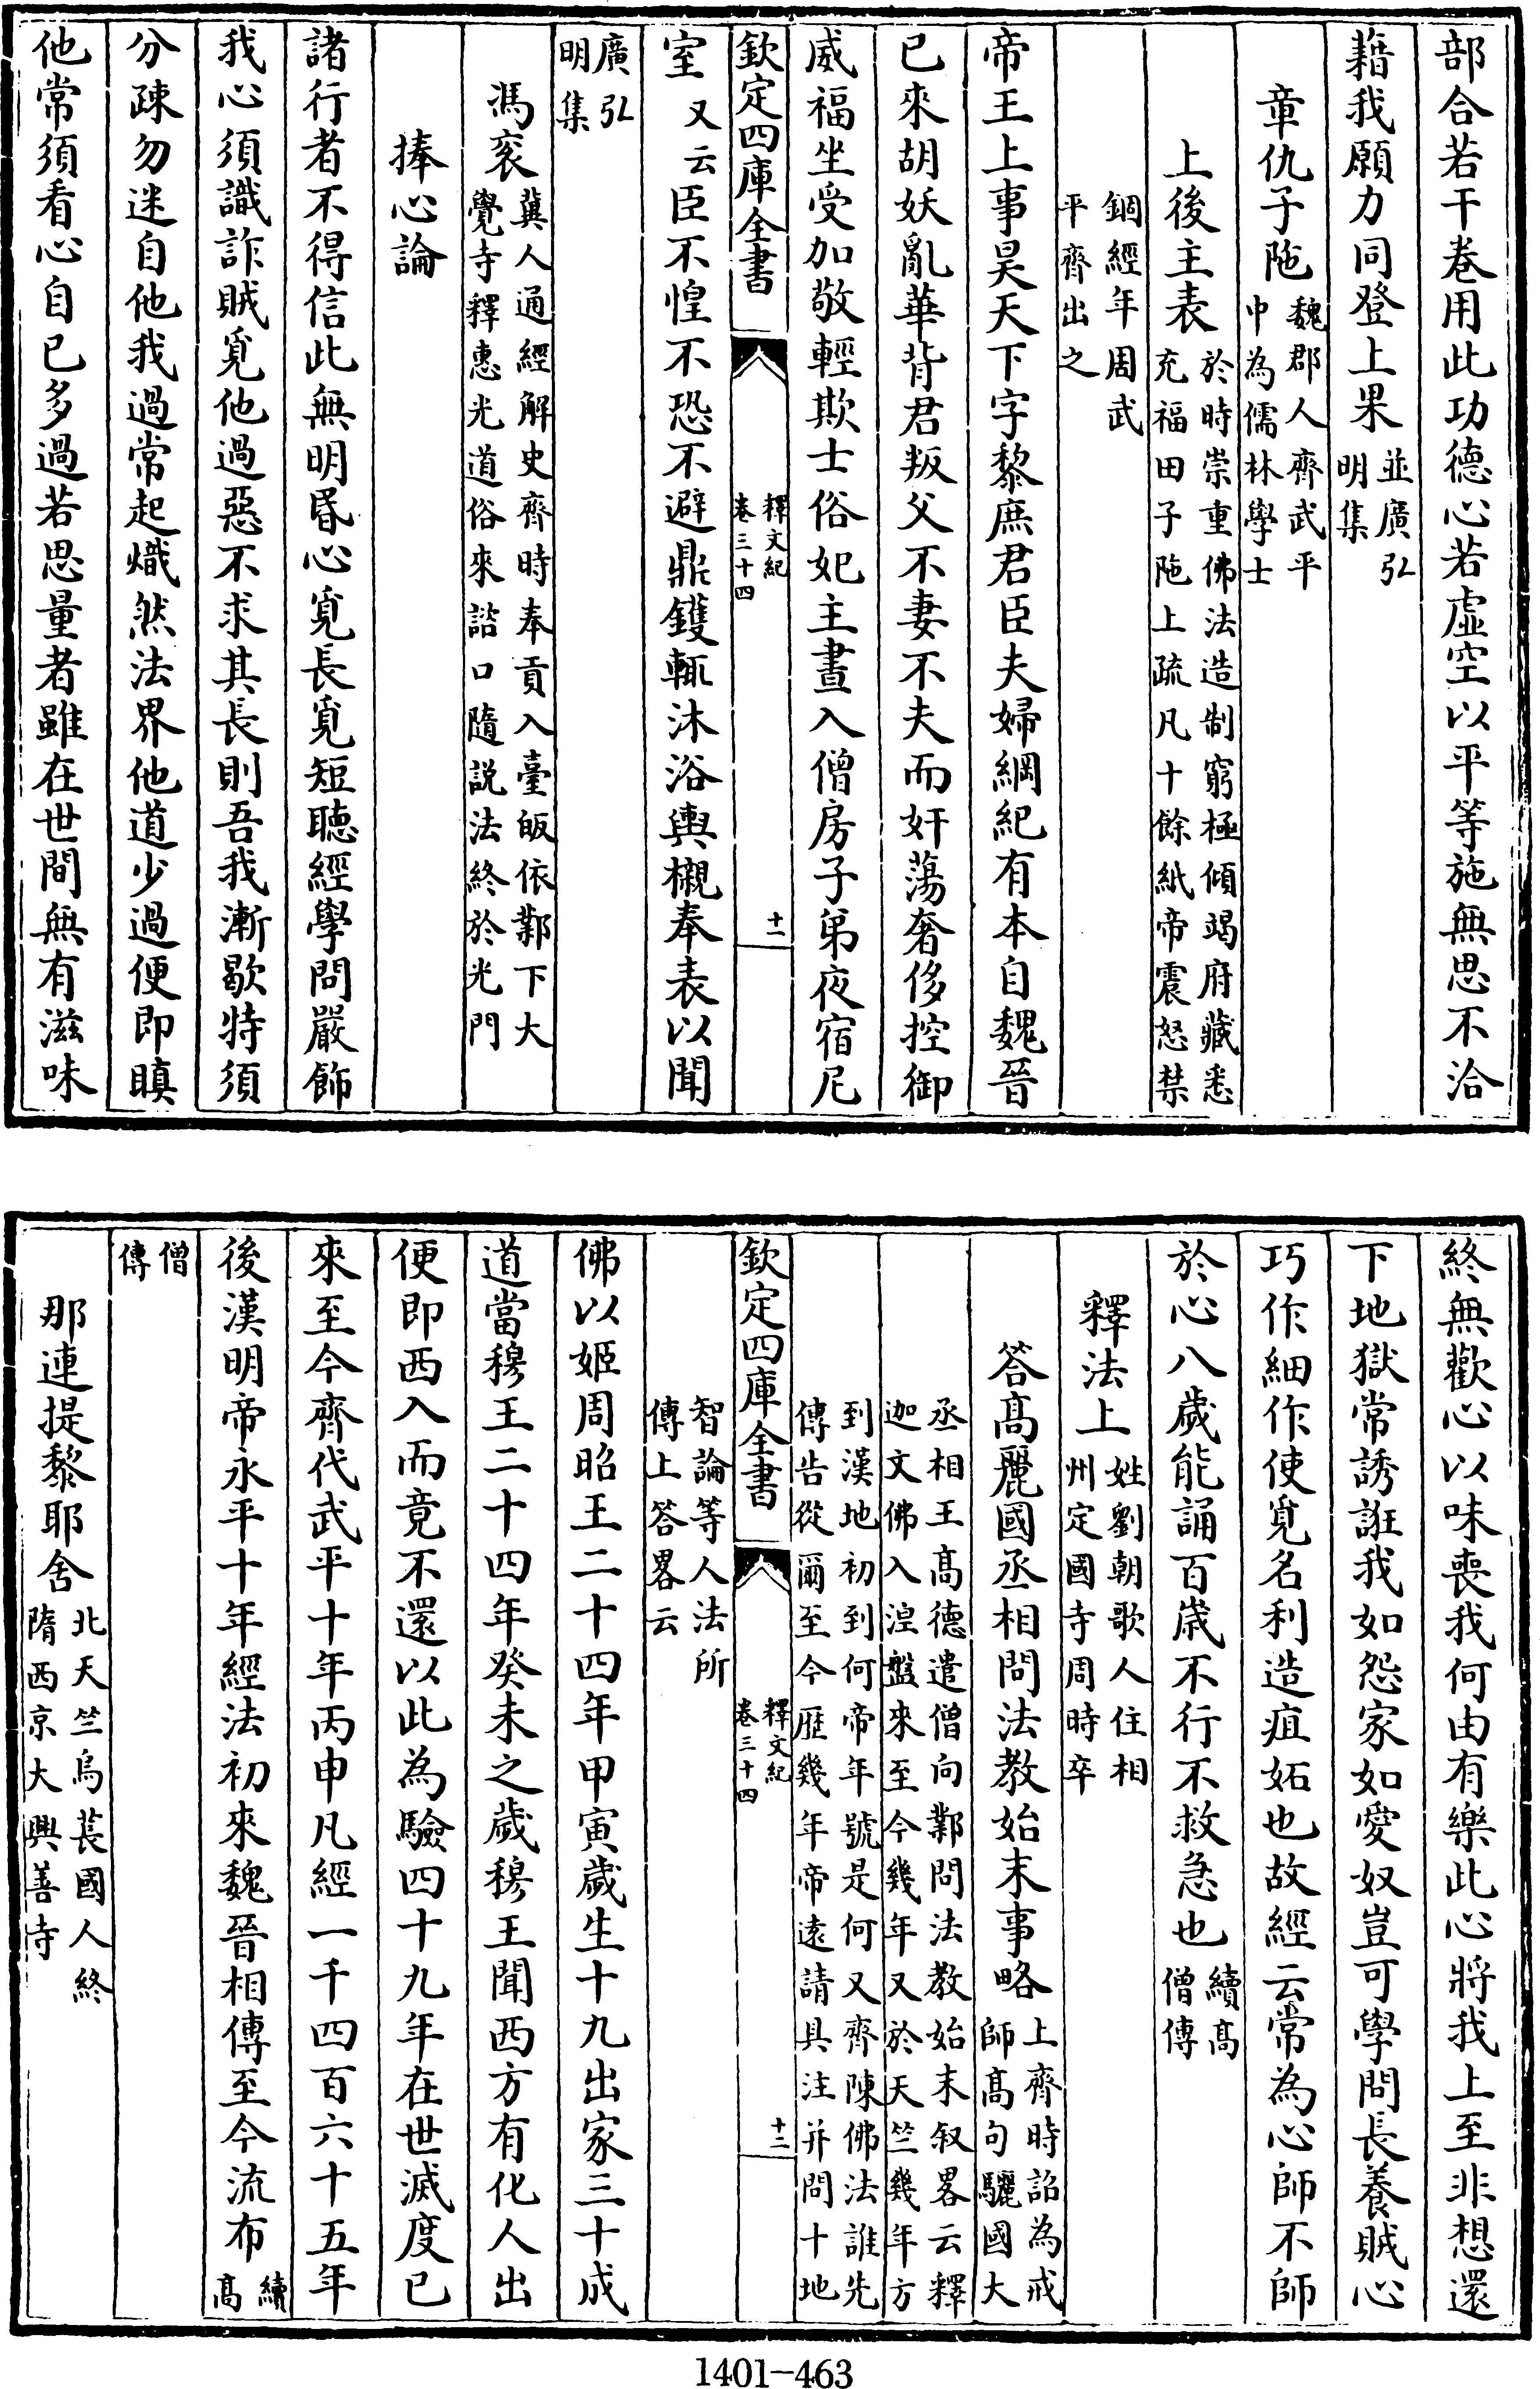 部合若干卷用此功德心若虛空以平等施無思不洽
藉我願力同登上果並廣弘明集
章仇子陁魏郡人齊武平中為儒林學士
上後主表於時崇重佛法造制窮極傾竭府藏悉充福田子陁上疏凡十餘紙帝震怒禁
錮經年周武平齊出之
帝王上事昊天下字黎庶君臣夫婦綱紀有本自魏晉
已來胡妖亂華背君叛父不妻不夫而奸蕩奢侈控御
威福坐受加敬輕欺士俗妃主晝入僧房子弟夜宿尼
欽定四庫全書 釋文紀卷三十四 十一
室又云臣不惶不恐不避鼎鑊輒沐浴輿櫬奉表以聞
廣弘明集
馮衮冀人通經解史齊時奉貢入臺皈依鄴下大覺寺釋惠光道俗來諮口隨説法終於光門
捧心論
諸行者不得信此無明昬心覓長覓短聽經學問嚴飾
我心須識詐賊覓他過惡不求其長則吾我漸歇特須
分疎勿迷自他我過常起熾然法界他道少過便即瞋
他常須看心自己多過若思量者雖在世間無有滋味
終無歡心以味喪我何由有樂此心將我上至非想還
下地獄常誘誑我如怨家如愛奴豈可學問長養賊心
巧作細作使覓名利造疽妬也故經云常為心師不師
於心八歲能誦百歲不行不救急也續高僧傳
釋法上姓劉朝歌人住相州定國寺周時卒
答髙麗國丞相問法教始末事略上齊時詔為戒師髙句驪國大
丞相王髙德遣僧向鄴問法教始末叙畧云釋迦文佛入湼盤來至今幾年又於天竺幾年方
到漢地初到何帝年號是何又齊陳佛法誰先傳告從爾至今歷幾年帝遠請具注并問十地
欽定四庫全書 釋文紀卷三十四 十二
智論等人法所傳上答畧云
佛以姬周昭王二十四年甲寅歲生十九出家三十成
道當穆王二十四年癸未之歲穆王聞西方有化人出
便即西入而竟不還以此為驗四十九年在世滅度已
來至今齊代武平十年丙申凡經一千四百六十五年
後漢明帝永平十年經法初來魏晉相傳至今流布續髙
僧傳
那連提黎耶舍北天竺烏萇國人終隋西京大興善寺
1401-463